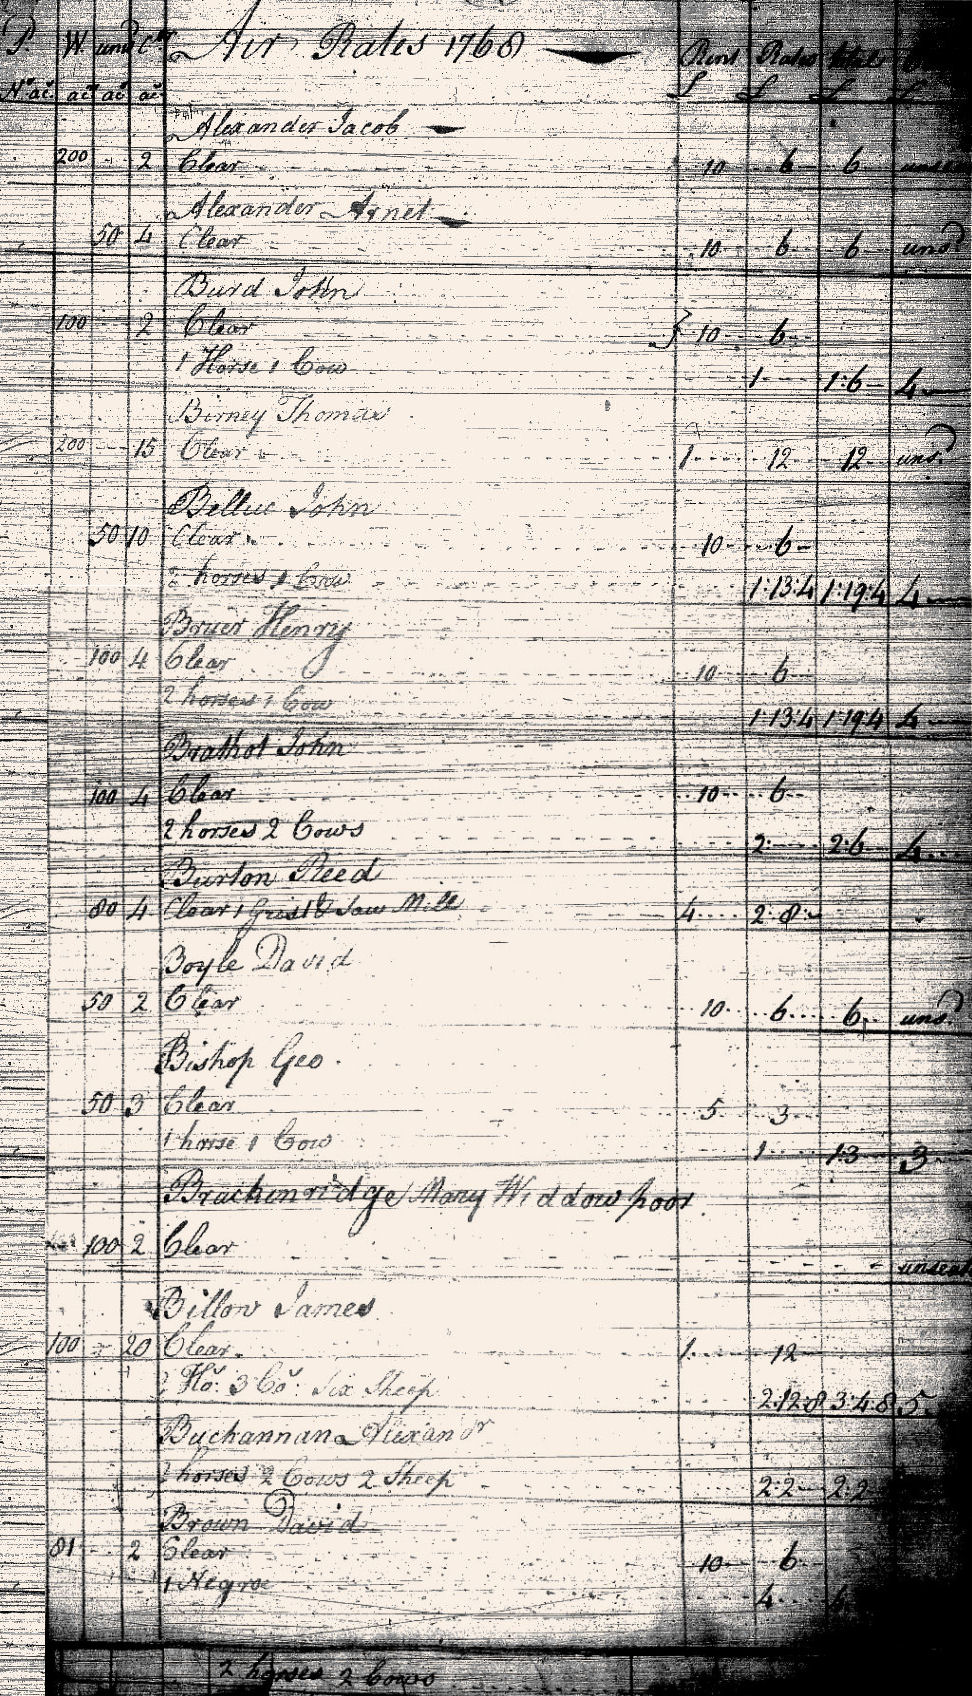 P. W. und Cler Air Rates 1768 Rent Rates
No ac ac ac ac £ £ £ £
Alexander Jacob
200 2 Clear 10 6 6
Alexander Arnet
50 4 Clear 10 6 6 unsd
Burd John
100 2 Clear } 10 6
1 Horse 1 Cow 1 1:6 4
Birney Thomas
200 15 Clear 1 12 12 unsd
Bellue John
50 10 Clear 10 6
2 horses 1 Cow 1:13:4 1:19:4 4
Bruer Henry
100 4 Clear 10 6
2 horses 1 Cow 1:13:4 1:19:4 4
Brathot John
100 4 Clear 10 6
2 horses 2 Cows 2 2:6 4
Burton Reed
80 4 Clear 1 Grist & Saw Mill 4 2:8
Boyle David
50 2 Clear 10 6 6 unsd
Bishop Geo
50 3 Clear 5 3
1 horse 1 Cow 1 1:3 3
Brackinridge Mary Widdow poor
100 2 Clear
Billow James
100 20 Clear 1 12
2 Ho: 3 Co: Six Sheep 2:12:8 3:4:8 5
Buchannan Alexandr
2 horses 2 Cows 2 Sheep 2:2 2:2
Brown David
81 2 Clear 10 6
1 Negroe 4
2 horses 2 Cows